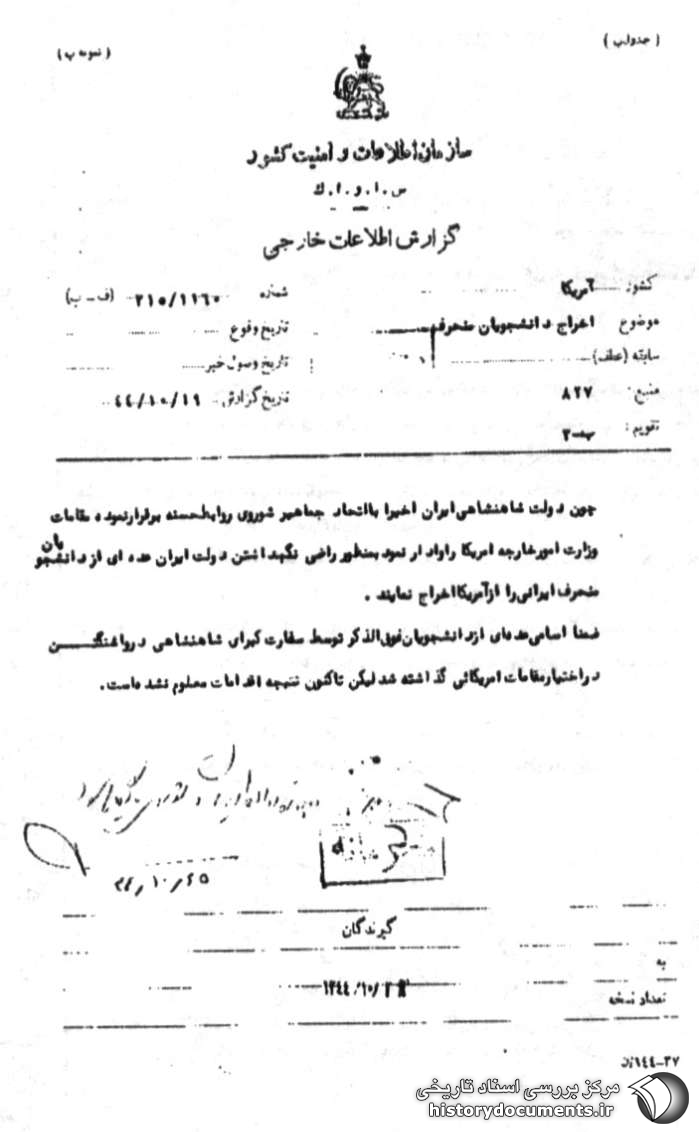 ( جدولب )
( نمونه پ )
سازمان اطلاعات و امنیت کشور
س . ا . و . ا . ك
گزارش اطلاعات خارجی
کشور آمریکا
شماره ۲۱۵/۱۱۶۰ (ف - ب)
موضوع اخراج دانشجویان منحرف
تاریخ وقوع
سابقه (عطف)
تاریخ وصول خبر
منبع ۸۲۷
تاریخ گزارش: ۴۴/۱۰/۱۹
تقویم :
چون دولت شاهنشاهی ایران اخیرا با اتحاد جماهیر شوروی روابط حسنه برقرار نموده مقامات
وزارت امور خارجه امریکا را وادار نمود بمنظور راضی نگهداشتن دولت ایران عده ای از دانشجویان
منحرف ایرانی را از آمریکا اخراج نمایند .
ضمنا اسامی عده‌ای از دانشجویان فوق الذکر توسط سفارت کبرای شاهنشاهی در واشنگتن
در اختیار مقامات امریکائی گذاشته شد لیکن تاکنون نتیجه اقدامات معلوم نشده است.
گیرندگان
به
تعداد نسخه
مرکز بررسی اسناد تاریخی
historydocuments.ir